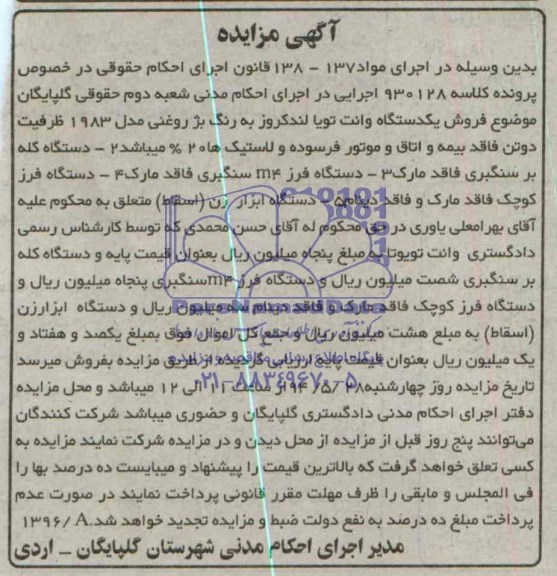 آگهی مزایده
بدین وسیله در اجرای مواد۱۳۷ - ۱۳۸قانون اجرای احکام حقوقی در خصوص
پرونده کلاسه ۹۳۰۱۲۸ اجرایی در اجرای احکام مدنی شعبه دوم حقوقی گلپایگان
موضوع فروش یکدستگاه وانت تویا لندکروز به رنگ بژ روغنی مدل ۱۹۸۳ ظرفیت
دوتن فاقد بیمه و اتاق و موتور فرسوده و لاستیک ها۲۰ % میباشد۲ - دستگاه کله
بر سنگبری فاقد مارک۳ - دستگاه فرز m۴ سنگبری فاقد مارک۴ - دستگاه فرز
کوچک فاقد مارک و فاقد دینام۵ - دستگاه ابزار زن (اسقاط) متعلق به محکوم علیه
آقای بهرامعلی یاوری در حق محکوم له آقای حسن محمدی که توسط کارشناس رسمی
دادگستری وانت تویوتا به مبلغ پنجاه میلیون ریال بعنوان قیمت پایه و دستگاه کله
بر سنگبری شصت میلیون ریال و دستگاه فرز m۴سنگبری پنجاه میلیون ریال و
دستگاه فرز کوچک فاقد مارک و فاقد دینام سه میلیون ریال و دستگاه ابزارزن
(اسقاط) به مبلغ هشت میلیون ریال و جمع کل اموال فوق بمبلغ یکصد و هفتاد و
یک میلیون ریال بعنوان قیمت پایه ارزیابی گردیده از طریق مزایده بفروش میرسد
تاریخ مزایده روز چهارشنبه۲۸ /۵/ ۹۴ از ساعت ۱۱ الی ۱۲ میباشد و محل مزایده
دفتر اجرای احکام مدنی دادگستری گلپایگان و حضوری میباشد شرکت کنندگان
می‌توانند پنج روز قبل از مزایده از محل دیدن و در مزایده شرکت نمایند مزایده به
کسی تعلق خواهد گرفت که بالاترین قیمت را پیشنهاد و میبایست ده درصد بها را
فی المجلس و مابقی را ظرف مهلت مقرر قانونی پرداخت نمایند در صورت عدم
پرداخت مبلغ ده درصد به نفع دولت ضبط و مزایده تجدید خواهد شد.A /۱۳۹۶
مدیر اجرای احکام مدنی شهرستان گلپایگان - اردی
۰۲۱-۸۸۳۴۹۶۷۰-۵